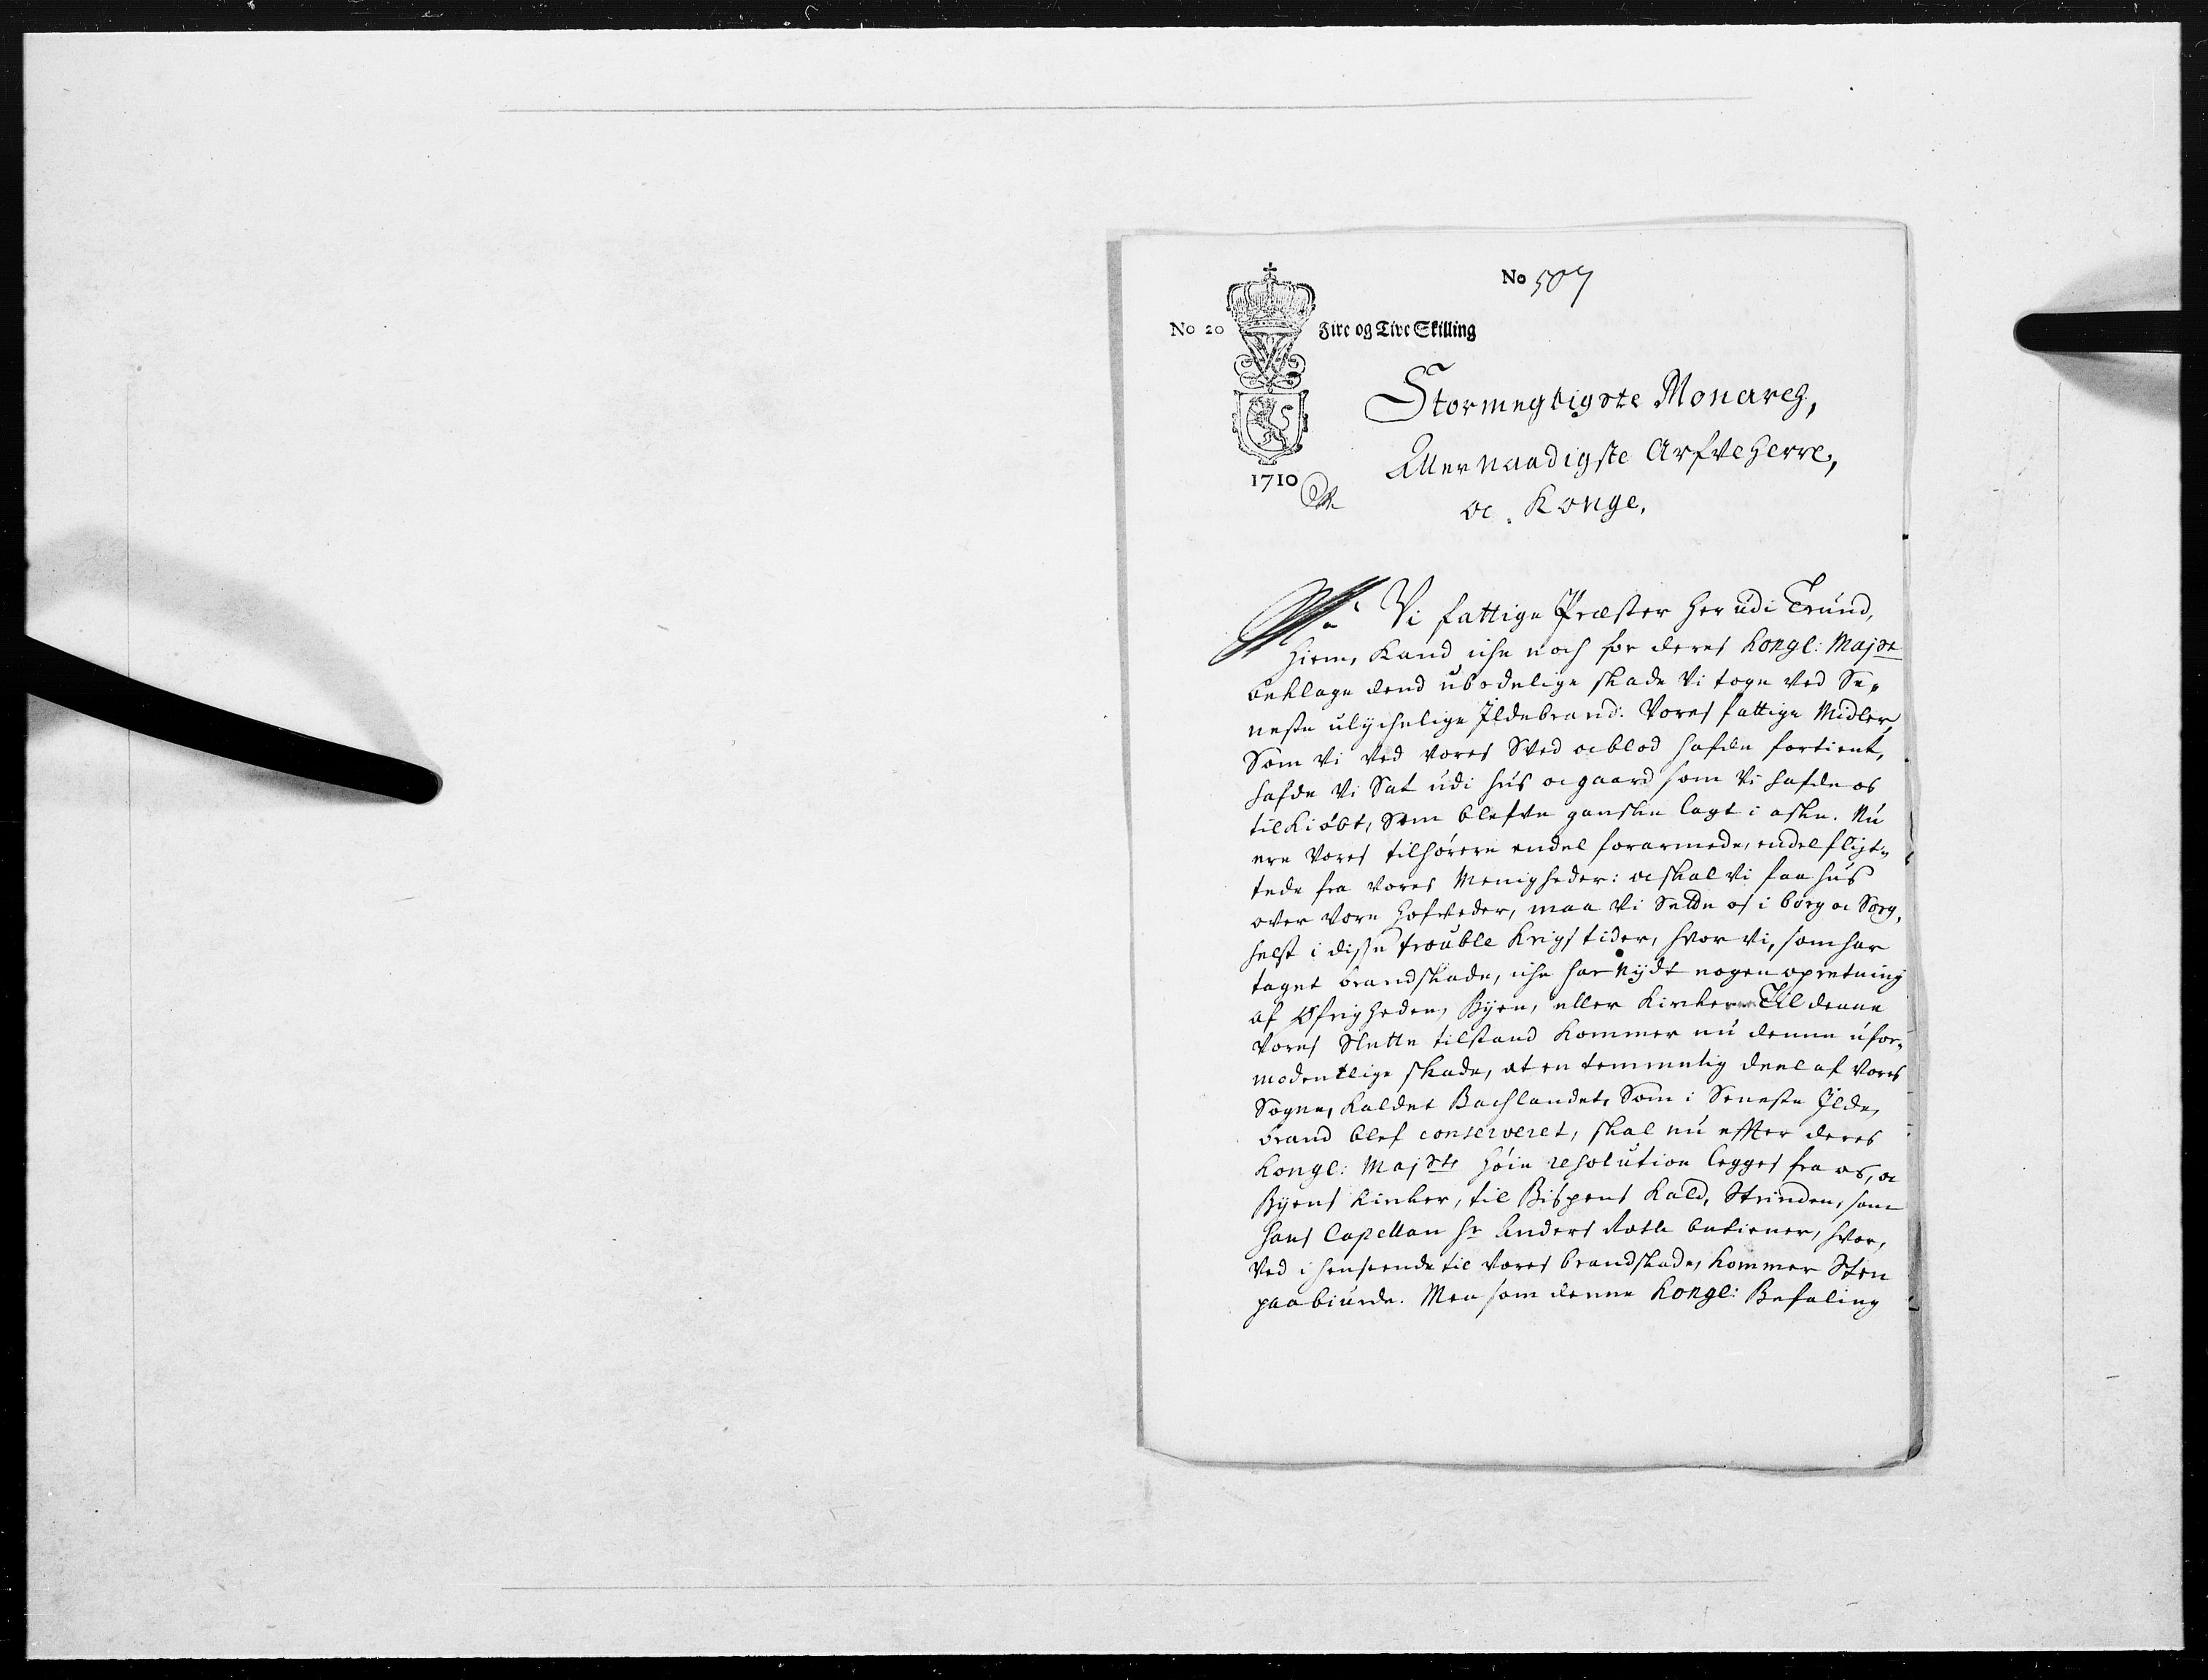 No 507
No 20 Fire og Tive Skilling
Stormegtigste Monarch,
Allernaadigste Arfveherre,
1710
oc Konge,
Vi fattige Præster her udi Trund,
hiem, Kand iche noch for deres Kongl: Majst
beklage dend ubodelige skade Vi toge ved Se,,
neste ulychelige Ildebrand: Vores fattige Midler,
Som Vi ved vores Sved oc blod hafde fortient,
hafde Vi Sat udi hus oc gaard som Vi hafde os
tilkiøbt, Som blefve ganske lagt i aske. Nu
ere Vores tilhørere endel forarmede, endel flyt,,
tede fra vores Menigheder: oc skal Vi faa hus
over Vore Hofveder, maa Vi Sette os i borg oc Sorg,
helst i disse trouble Krigs tider, hvor Vi, som har
taget brandskade, iche har nydt nogen opretning
af Øfrigheden, Byen, eller Kirker. Til denne
Vores Slette tilstand Kommer nu denne ufor,,
modentlige skade, at en temmelig deel af Vores
Sogne, Kaldet Bachlandet, Som i Seneste Ilde,
brand blef conserveret, skal nu effter deres
Kongl: Majsts høie resolution legges fra os, oc
Byens Kirker, til Bispens Kald, Strinden, som
hans Capellan Hr Anders Rotle betiener, hvor,
Ved i henseende til Vores brandskade, Kommer Sten
paa biurde. Men som denne Kongl: Befaling